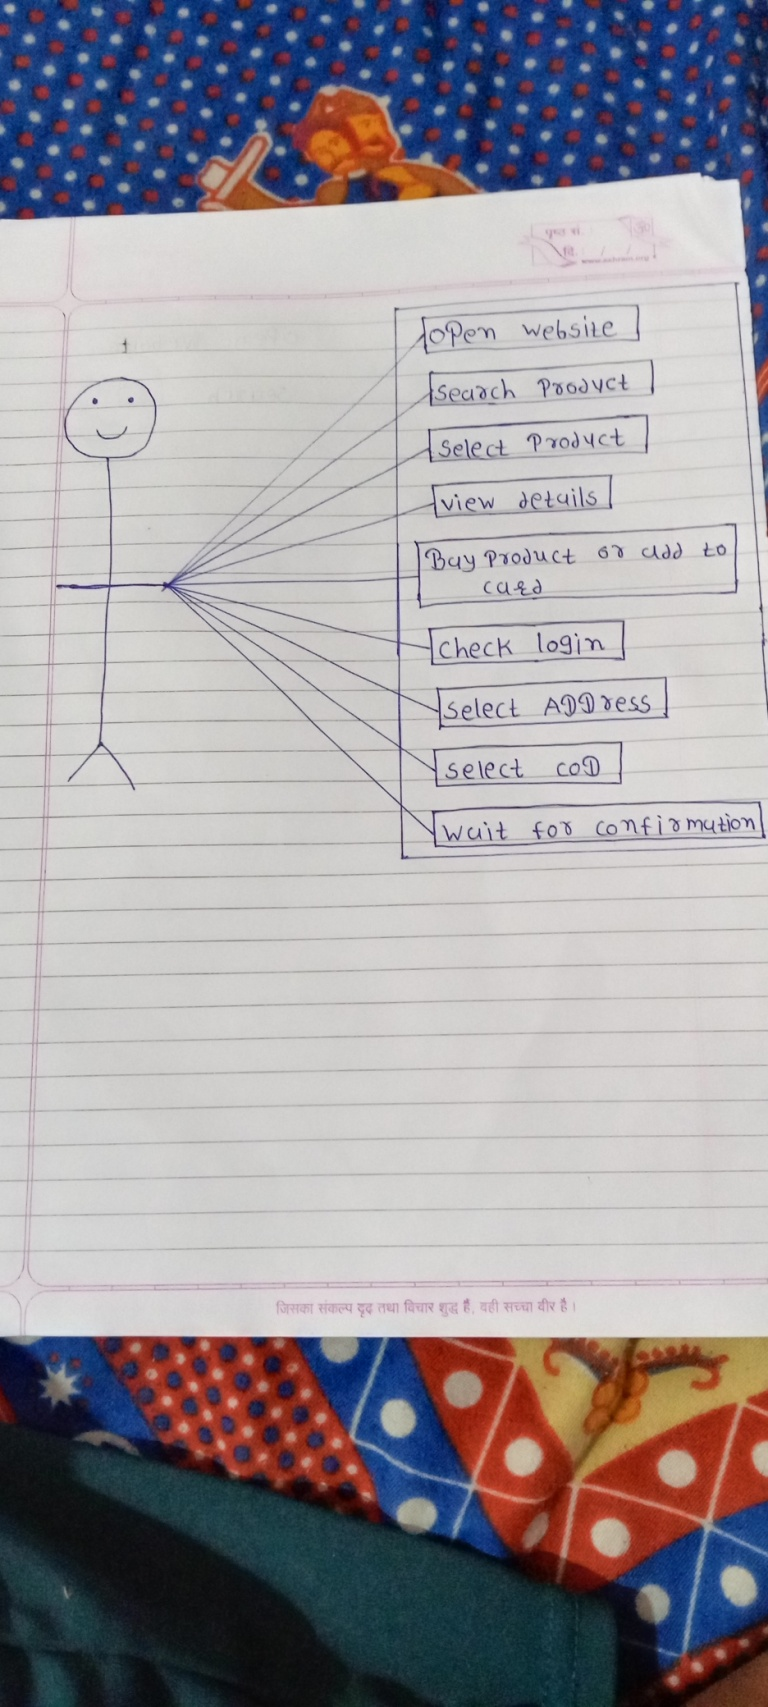 पृष्ठ सं.
दि. / /
open website
search product
select product
view details
Buy product or add to
card
check login
select ADDress
select COD
wait for confirmation
जिसका संकल्प दृढ़ तथा विचार शुद्ध हैं, वही सच्चा वीर है।